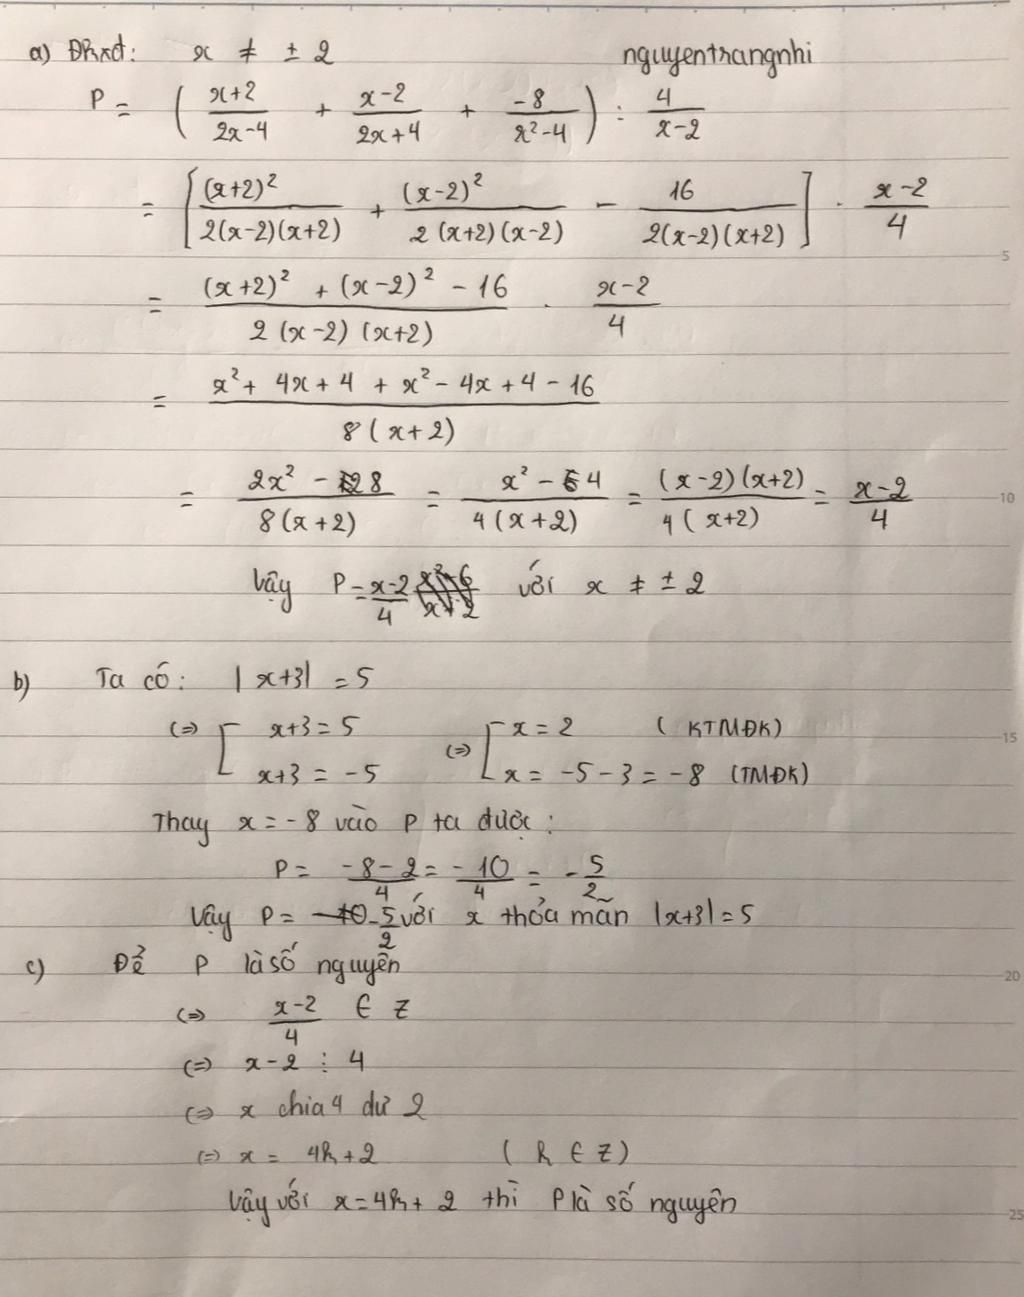 a) ĐKXĐ: x ≠ ± 2 nguyentrangnhi
P = ( (x+2)/(2x-4) + (x-2)/(2x+4) + (-8)/(x²-4) ) : 4/(x-2)
= [ (x+2)²/(2(x-2)(x+2)) + (x-2)²/(2(x+2)(x-2)) - 16/(2(x-2)(x+2)) ] . (x-2)/4
= ((x+2)² + (x-2)² - 16)/(2(x-2)(x+2)) . (x-2)/4
= (x² + 4x + 4 + x² - 4x + 4 - 16)/(8(x+2))
= (2x² - 8)/(8(x+2)) = (x² - 4)/(4(x+2)) = ((x-2)(x+2))/(4(x+2)) = (x-2)/4
Vậy P = (x-2)/4 với x ≠ ± 2
b) Ta có: |x+3| = 5
(=) [ x+3 = 5 (=) [ x = 2 (KTMĐK)
x+3 = -5 x = -5-3 = -8 (TMĐK)
Thay x = -8 vào P ta được:
P = (-8-2)/4 = -10/4 = -5/2
Vậy P = -5/2 với x thỏa mãn |x+3|=5
c) Để P là số nguyên
(=) (x-2)/4 ∈ Z
(=) x-2 ⋮ 4
(=) x chia 4 dư 2
(=) x = 4k+2 (k ∈ Z)
Vậy với x=4k+2 thì P là số nguyên
5
10
15
20
25